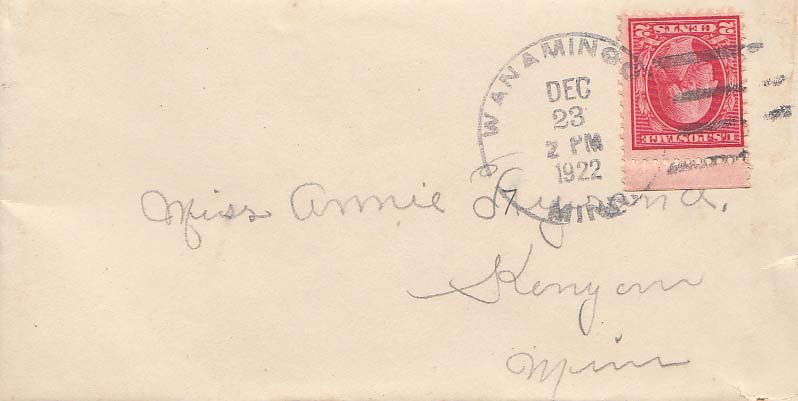 2 CENTS 2
U.S. POSTAGE
WANAMINGO
DEC
23
2 PM
1922
MINN.
Miss Annie
Kenyon
Minn